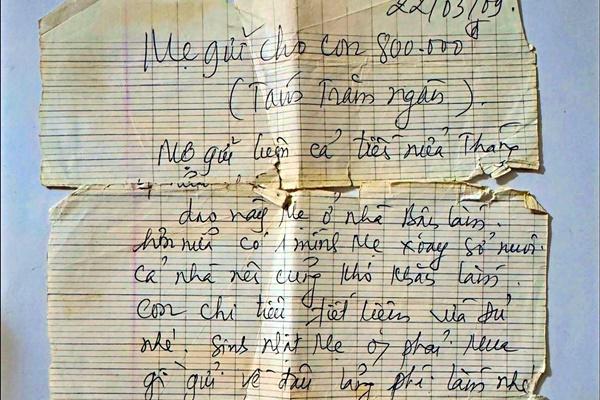 22/03/09.
Mẹ gửi cho con 800.000đ
(Tám Trăm ngàn).
Mẹ gửi luôn cả tiền nửa Tháng
dạo này Mẹ ở nhà Bận lắm.
hơn nữa có 1 mình Mẹ xoay sở nuôi
cả nhà nên cũng khó khăn lắm.
con chi tiêu tiết kiệm vừa đủ
nhé. Sinh nhật Mẹ ko phải Mua
gì gửi về đâu lãng phí lắm nhé